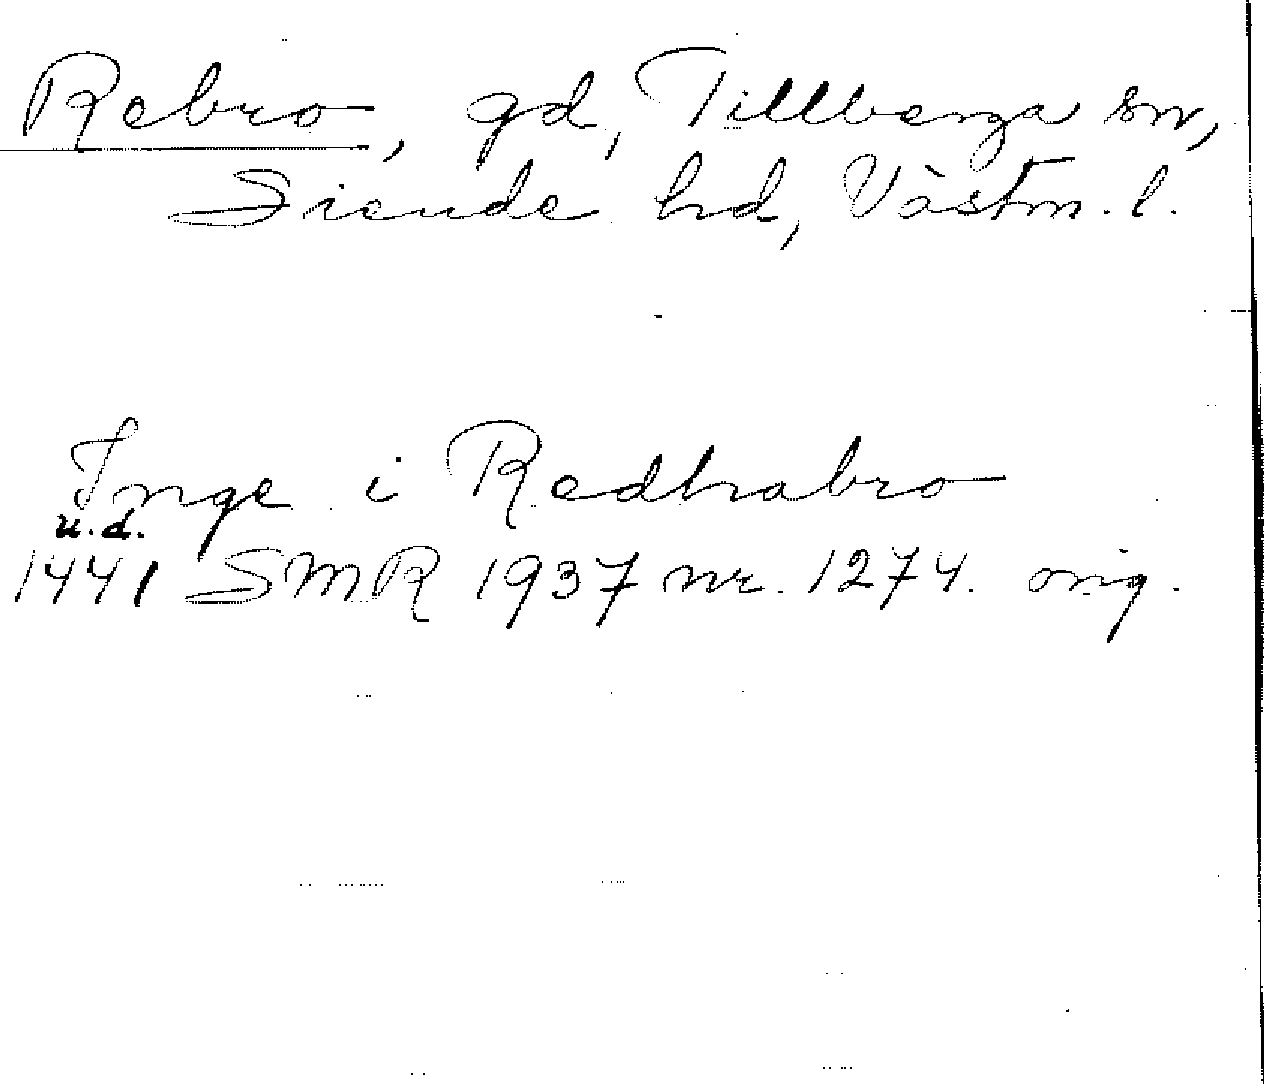 Rebro, gd, Tillberga sn,
Siende hd, Västm. l.
Inge i Redhabro
u.d.
1441 SMR 1937 nr. 1274. orig.